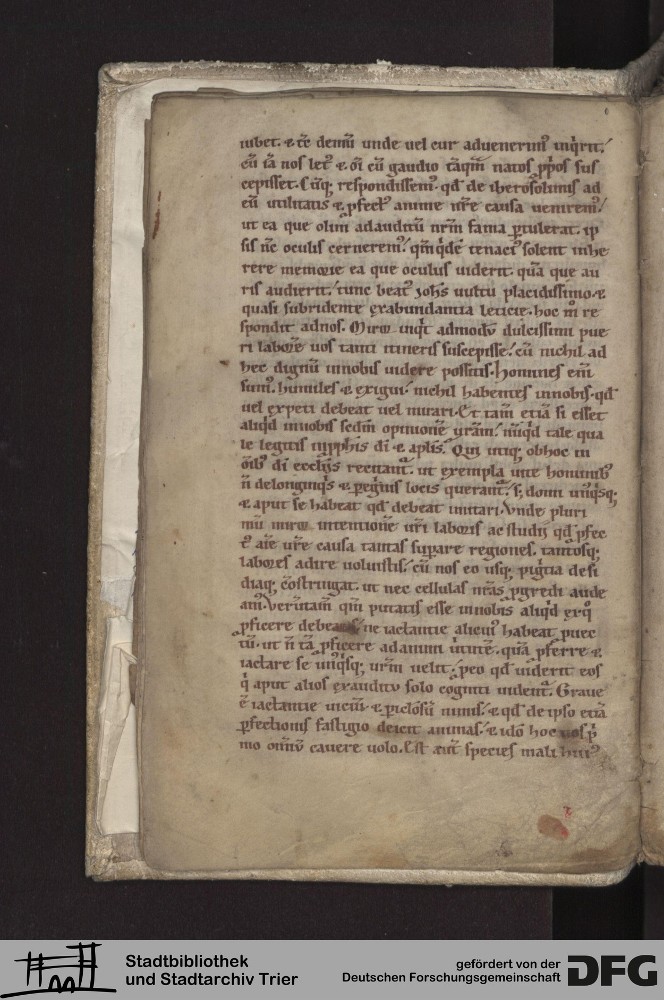 iubet. & tc̄ demū unde uel cur aduenerim᷒ inq̇rit.
cū iā nos let᷒ & oī cū gaudio tāqm̄ natos ꝓpos sus
cepisset. Cūq; respondissem᷒. qd̄ de iherosolimis ad
eū utilitatis & ꝓfect᷒ anime nr̄e causa uenirem᷒.
ut ea que olim adauditū nr̄m fama ꝑtulerat. ip
sis nc̄ oculis cernerem᷒. qm̄ q̇dē tenaci᷒ solent inhe
rere memorie ea que oculus uiderit. quā que au
ris audierit. tunc beat᷒ Iohs̄ uultu placidissimo. &
quasi subridente exabundantia leticie. hoc m̊ re
spondit adnos. Miror inq̇t admodū dulcissimi pue
ri laborē uos tanti itineris suscepisse. cū nichil ad
hec dignū innobis uidere possitis. Homines em̄
sum᷒. humiles & exigui. nichil habentes innobis. qd̄
uel expeti debeat uel mirari. Et tam̄ etiā si esset
aliq̇d innobis scdm̄ opinionē uram̄. nūq̇d tale qua
le legitis inꝓphis di̅ & aplis̄. Qui utiq; obhoc in
ōib᷒ di̅ ecclīis recitantʳ. ut exempla uite hominib᷒
n̄ delonginq̇s & ꝑegrinis locis querantʳ. s; domi un᷒q̇sq;
& aput se habeat qd̄ debeat imitari. Vnde pluri
mū miror intentionē ur̄i laboris ac studii qd̄ ꝓfec
t᷒ aīe ur̄e causa tantas supare regiones. tantosq;
labores adire uoluistis. cū nos eo usq; pigritia desi
diaq; cōstringat. ut nec cellulas nr̄as ꝓgredi aude
am᷒. Verūtam̄ qm̄ putatis esse innobis aliq̇d exq̊
ꝓficere debeatis. ne iactantie alicui᷒ habeat puec
tū. ut n̄ tā ꝓficere adanimi uirtutē. quā ꝓferre &
iactare se un᷒q̇sq; urm̄ uelit. ꝓeo qd̄ uiderit eos
q̇ aput alios exauditu solo cogniti uidentʳ. Graue
ē iactantie uiciū. & ꝑiclosū nimis. & qd̄ de ipso etiā
ꝑfectionis fastigio deicit animas. & idō hoc uos pͥ
mo omniū cauere uolo. Est aut̄ species mali hui᷒
Stadtbibliothek
und Stadtarchiv Trier
gefördert von der
Deutschen Forschungsgemeinschaft
DFG